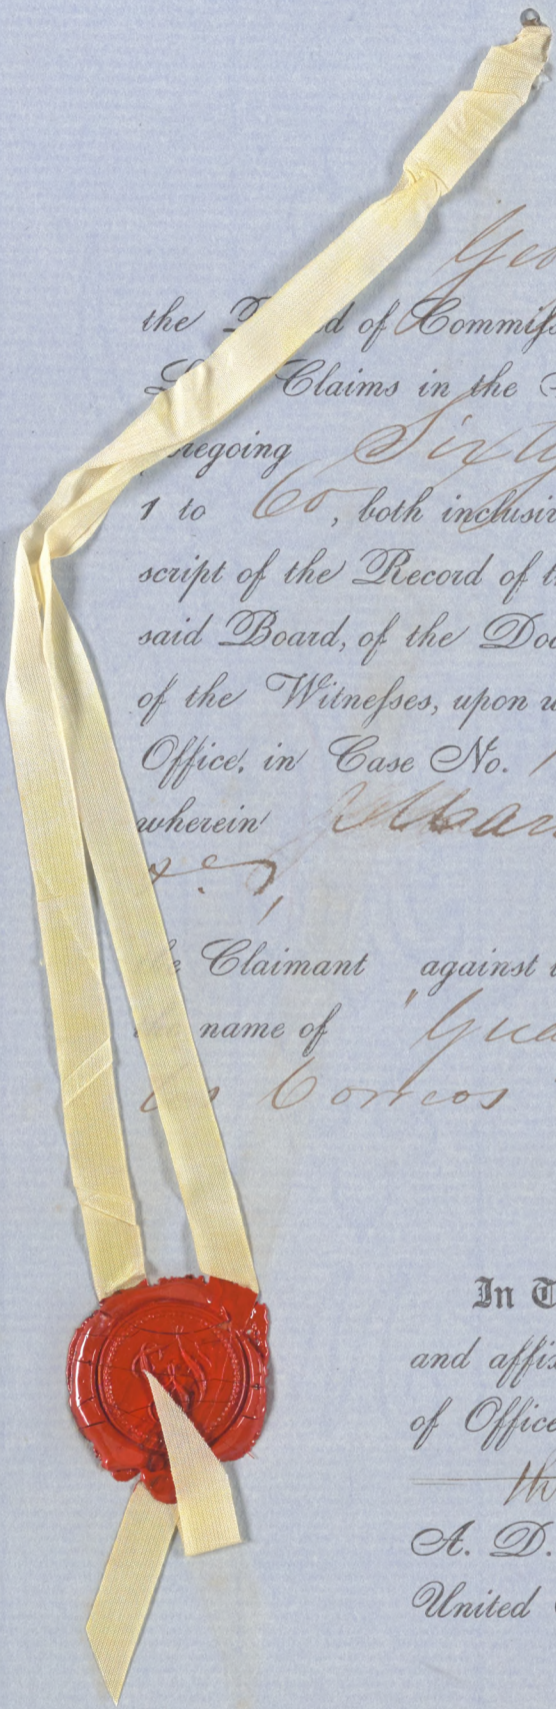 Geo
the d of Commiss
Claims in the
regoing Sixty
1 to 60, both inclusiv
script of the Record of t
said Board, of the Doc
of the Witnesses, upon w
Office, in Case No. 1
wherein Mar
Claimant against t
name of "Gua
Correos
In T
and affix
of Office
th
A. D.
United